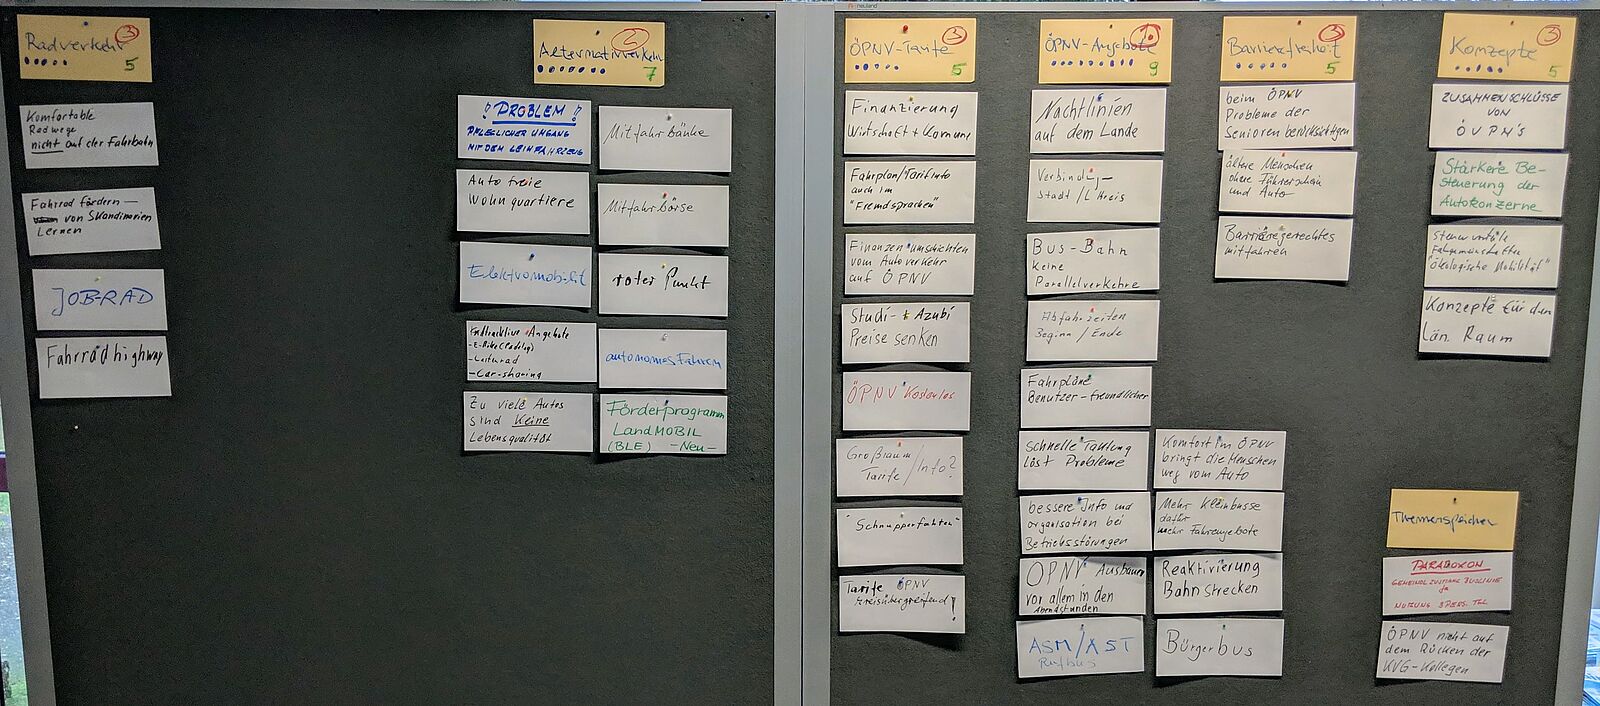 Radverkehr
3
5
Komfortable
Radwege
nicht auf der Fahrbahn
Fahrrad fördern —
von Skandinavien
Lernen
JOB-RAD
Fahrradhighway
Alternativverkehr
2
7
!! PROBLEM !!
PFLEGLICHER UMGANG
MIT DEM LEIHFAHRZEUG
Auto freie
Wohnquartiere
Elektromobilität
Angebote
- Leihrad
- Car-sharing
Zu viele Autos
sind Keine
Lebensqualität
Mitfahrbänke
Mitfahrbörse
roter Punkt
autonomes Fahren
Förderprogramm
LandMOBIL
(BLE) -Neu-
neuland
ÖPNV-Tarife
3
5
Finanzierung
Wirtschaft + Komune
Fahrplan/Tarifinfo
auch in
"Fremdsprachen"
Finanzen umschichten
vom Autoverkehr
auf ÖPNV
Studi- + Azubi
Preise senken
ÖPNV Kostenlos
Großraum
Tarife / Info?
"Schnupperfahrten"
Tarife ÖPNV
Kreisübergreifend!
ÖPNV-Angebote
9
Nachtlinien
auf dem Lande
Verbindg
Stadt / L'Kreis
Bus-Bahn
keine
Parallelverkehre
Abfahrzeiten
Beginn / Ende
Fahrpläne
Benutzer-freundlicher
Schnelle Taktung
löst Probleme
bessere Info und
organisation bei
Betriebsstörungen
ÖPNV Ausbauen
vor allem in den
Abendstunden
ASM/AST
Rufbus
Komfort im ÖPNV
bringt die Menschen
weg vom Auto
Mehr Kleinbusse
dafür
mehr Fahrangebote
Reaktivierung
Bahnstrecken
Bürgerbus
Barrierefreiheit
3
5
beim ÖPNV
Probleme der
Senioren berücksichtigen
ältere Menschen
ohne Führerschein
und Auto
Barrieregerechtes
mitfahren
Konzepte
3
5
ZUSAMMENSCHLÜSSE
VON
ÖVPN'S
Stärkere Be-
steuerung der
Autokonzerne
"Ökologische Mobilität"
Konzepte für den
län. Raum
Themenspeicher
PARADOXON
NUTZUNG 3 PERS. TGL.
ÖPNV nicht auf
dem Rücken der
KVG-Kollegen